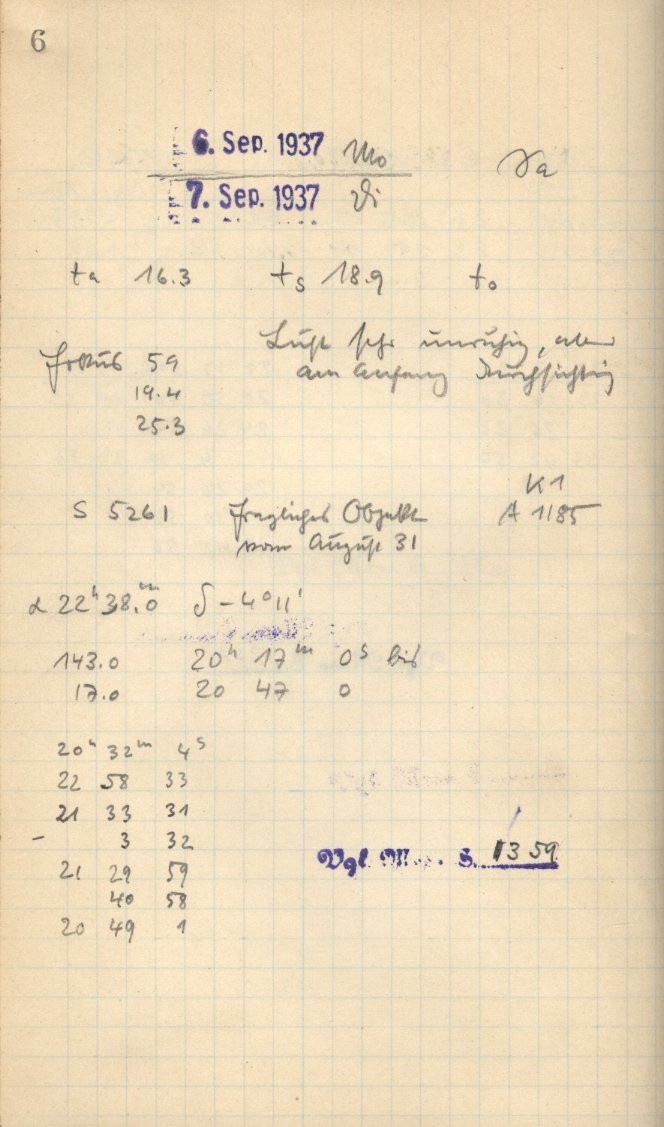 6
6. Sep. 1937 Mo
7. Sep. 1937 Di
ta 16.3 ts 18.9 to
Fokus 59
19.4
25.3
Luft sehr unruhig, aber
am Anfang durchsichtig
K1
S 5261 fragliches Objekt A 1185
vom August 31
α 22ʰ 38.ᵐ0 δ -4°11'
143.0 20ʰ 17ᵐ 0ˢ bis
17.0 20 47 0
20ʰ 32ᵐ 4ˢ
22 58 33
21 33 31
- 3 32
21 29 59
40 58
20 49 1
Vgl. S. 1359